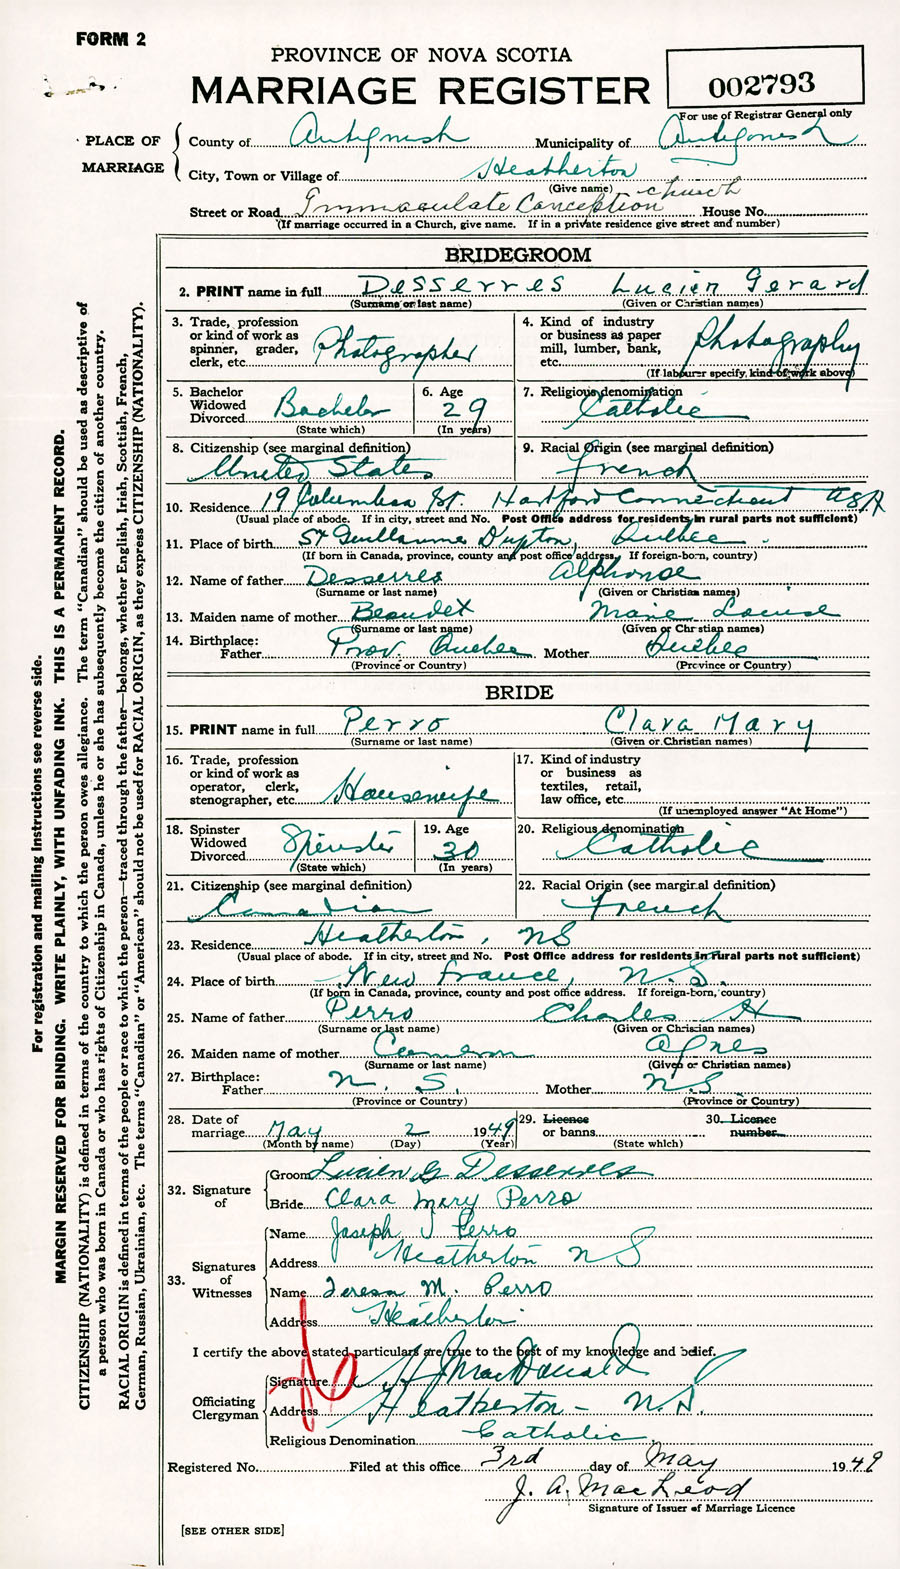 FORM 2
PROVINCE OF NOVA SCOTIA
MARRIAGE REGISTER
002793
For use of Registrar General only
PLACE OF MARRIAGE
County of Antigonish Municipality of Antigonish
City, Town or Village of Heatherton
(Give name)
Street or Road Immaculate Conception church House No.
(If marriage occurred in a Church, give name. If in a private residence give street and number)
BRIDEGROOM
2. PRINT name in full Desserres Lucien Gerard
(Surname or last name) (Given or Christian names)
3. Trade, profession or kind of work as spinner, grader, clerk, etc. Photographer
4. Kind of industry or business as paper mill, lumber, bank, etc. Photography
(If labourer specify, kind of work above)
5. Bachelor Widowed Divorced Bachelor
(State which)
6. Age 29
(In years)
7. Religious denomination Catholic
8. Citizenship (see marginal definition) United States
9. Racial Origin (see marginal definition) French
10. Residence 19 Columbia St. Hartford Connecticut USA
(Usual place of abode. If in city, street and No. Post Office address for residents in rural parts not sufficient)
11. Place of birth St Guillaume D'upton, Quebec.
(If born in Canada, province, county and post office address. If foreign-born, country)
12. Name of father Desserres Alphonse
(Surname or last name) (Given or Christian names)
13. Maiden name of mother Beaudet Marie Louise
(Surname or last name) (Given or Christian names)
14. Birthplace: Father Prov. Quebec Mother Quebec
(Province or Country) (Province or Country)
BRIDE
15. PRINT name in full Perro Clara Mary
(Surname or last name) (Given or Christian names)
16. Trade, profession or kind of work as operator, clerk, stenographer, etc. Housewife
17. Kind of industry or business as textiles, retail, law office, etc.
(If unemployed answer "At Home")
18. Spinster Widowed Divorced Spinster
(State which)
19. Age 30
(In years)
20. Religious denomination Catholic
21. Citizenship (see marginal definition) Canadian
22. Racial Origin (see marginal definition) French
23. Residence Heatherton, NS
(Usual place of abode. If in city, street and No. Post Office address for residents in rural parts not sufficient)
24. Place of birth New France, N.S.
(If born in Canada, province, county and post office address. If foreign-born, country)
25. Name of father Perro Charles H
(Surname or last name) (Given or Christian names)
26. Maiden name of mother Cameron Agnes
(Surname or last name) (Given or Christian names)
27. Birthplace: Father N. S. Mother N.S
(Province or Country) (Province or Country)
28. Date of marriage May 2 1949
(Month by name) (Day) (Year)
29. Licence or banns
(State which)
30. Licence number
32. Signature of
Groom Lucien G Desserres
Bride Clara Mary Perro
33. Signatures of Witnesses
Name Joseph J Perro
Address Heatherton NS
Name Teresa M. Perro
Address Heatherton
I certify the above stated particulars are true to the best of my knowledge and belief.
Officiating Clergyman
Signature H J MacDonald
Address Heatherton - N.S.
Religious Denomination Catholic
Registered No. Filed at this office 3rd day of May 1949
J. A. MacLeod
Signature of Issuer of Marriage Licence
[SEE OTHER SIDE]
For registration and mailing instructions see reverse side.
MARGIN RESERVED FOR BINDING. WRITE PLAINLY, WITH UNFADING INK. THIS IS A PERMANENT RECORD.
CITIZENSHIP (NATIONALITY) is defined in terms of the country to which the person owes allegiance. The term "Canadian" should be used as descriptive of
a person who was born in Canada or who has rights of Citizenship in Canada, unless he or she has subsequently become the citizen of another country.
RACIAL ORIGIN is defined in terms of the people or race to which the person—traced through the father—belongs, whether English, Irish, Scottish, French,
German, Russian, Ukrainian, etc. The terms "Canadian" or "American" should not be used for RACIAL ORIGIN, as they express CITIZENSHIP (NATIONALITY).